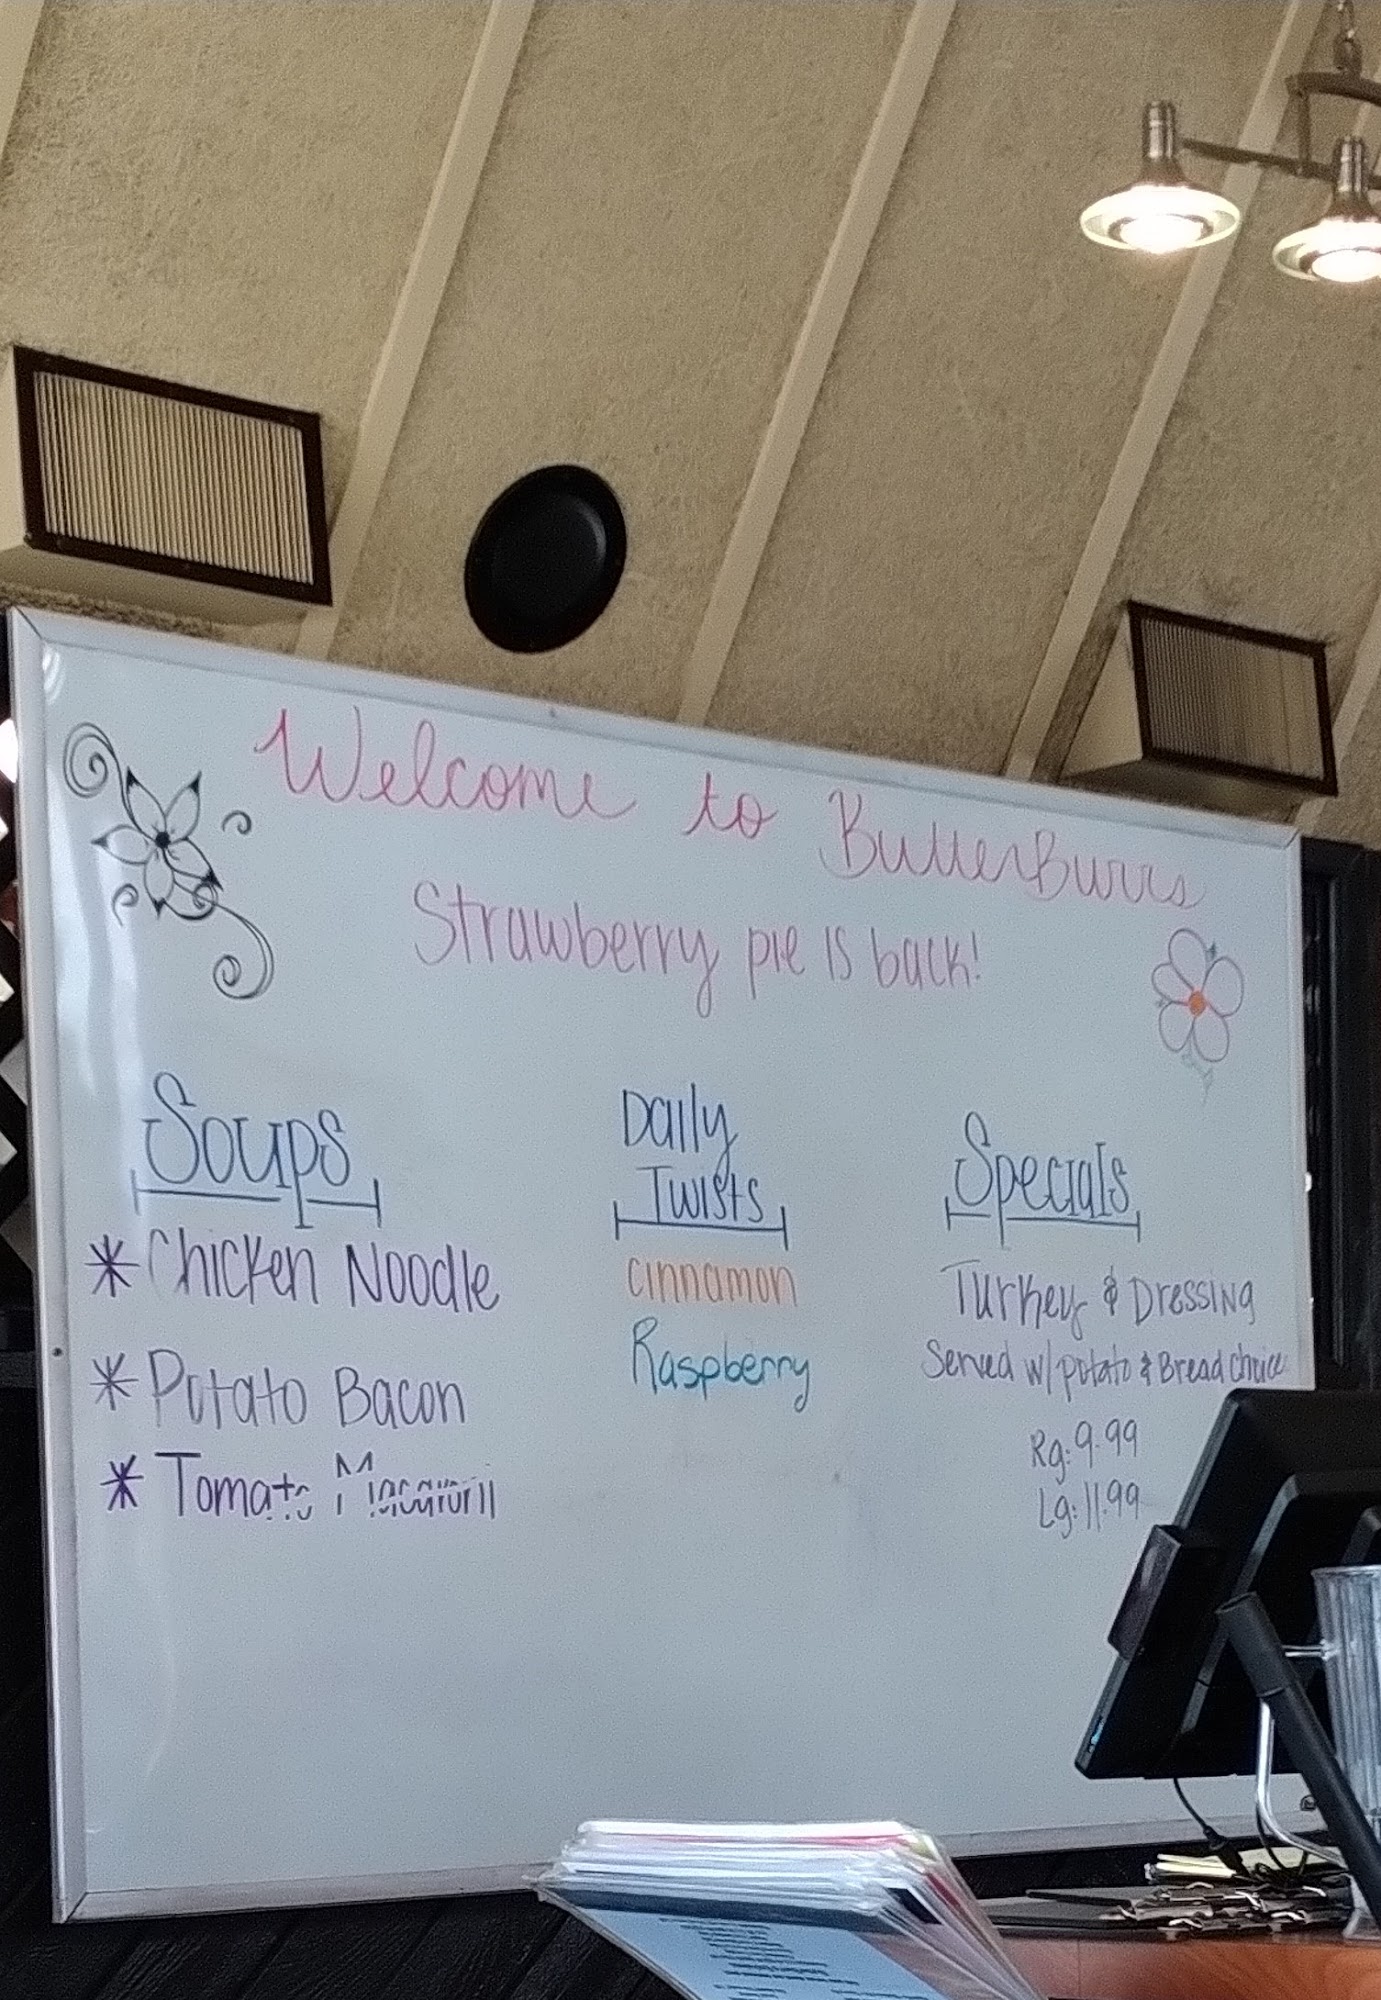 Welcome to ButterBurrs
Strawberry pie is back!
Soups
* Chicken Noodle
* Potato Bacon
* Tomato Macaroni
Daily
Twists
cinnamon
Raspberry
Specials
Turkey & Dressing
Served w/ potato & Bread choice
Rg: 9.99
Lg: 11.99